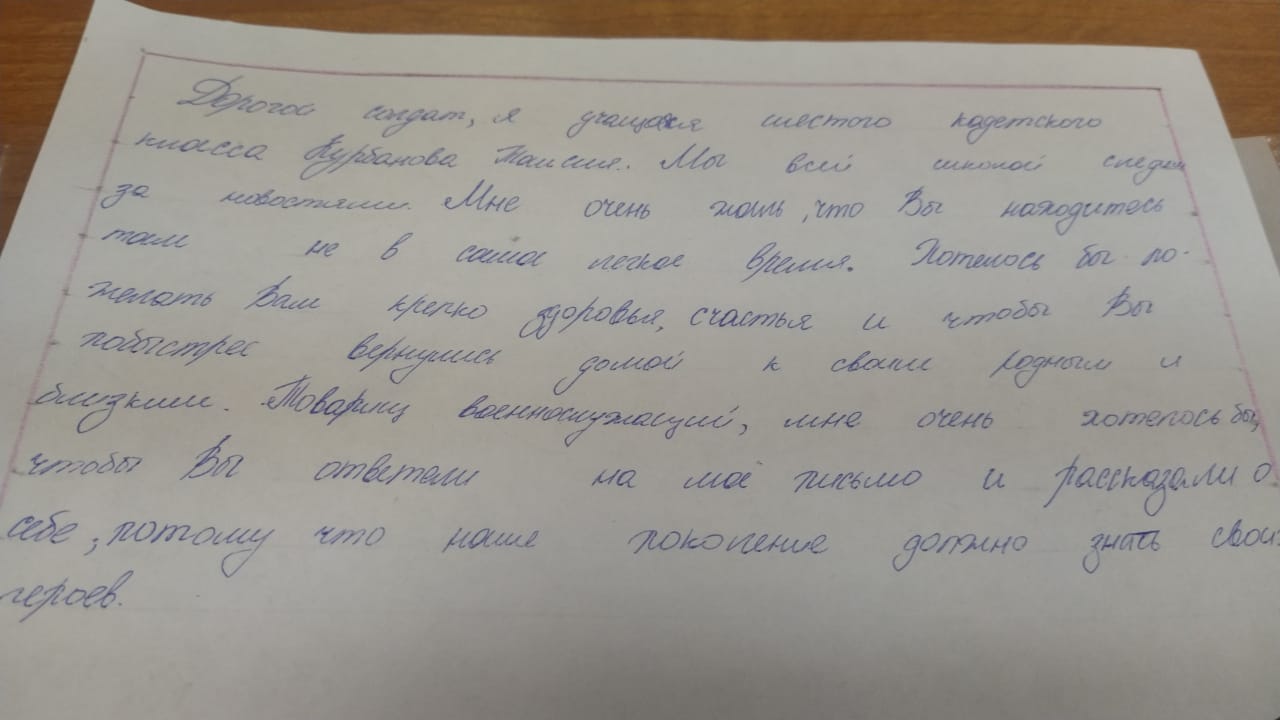 Дорогой солдат, я учащаяся шестого кадетского
класса Курбанова Таисия. Мы всей школой следим
за новостями. Мне очень жаль, что Вы находитесь
там не в самое легкое время. Хотелось бы по-
желать Вам крепко здоровья, счастья и чтобы Вы
побыстрее вернулись домой к своим родным и
близким. Товарищ военнослужащий, мне очень хотелось бы,
чтобы Вы ответели на моё письмо и рассказали о
себе, потому что наше поколение должно знать своих
героев.